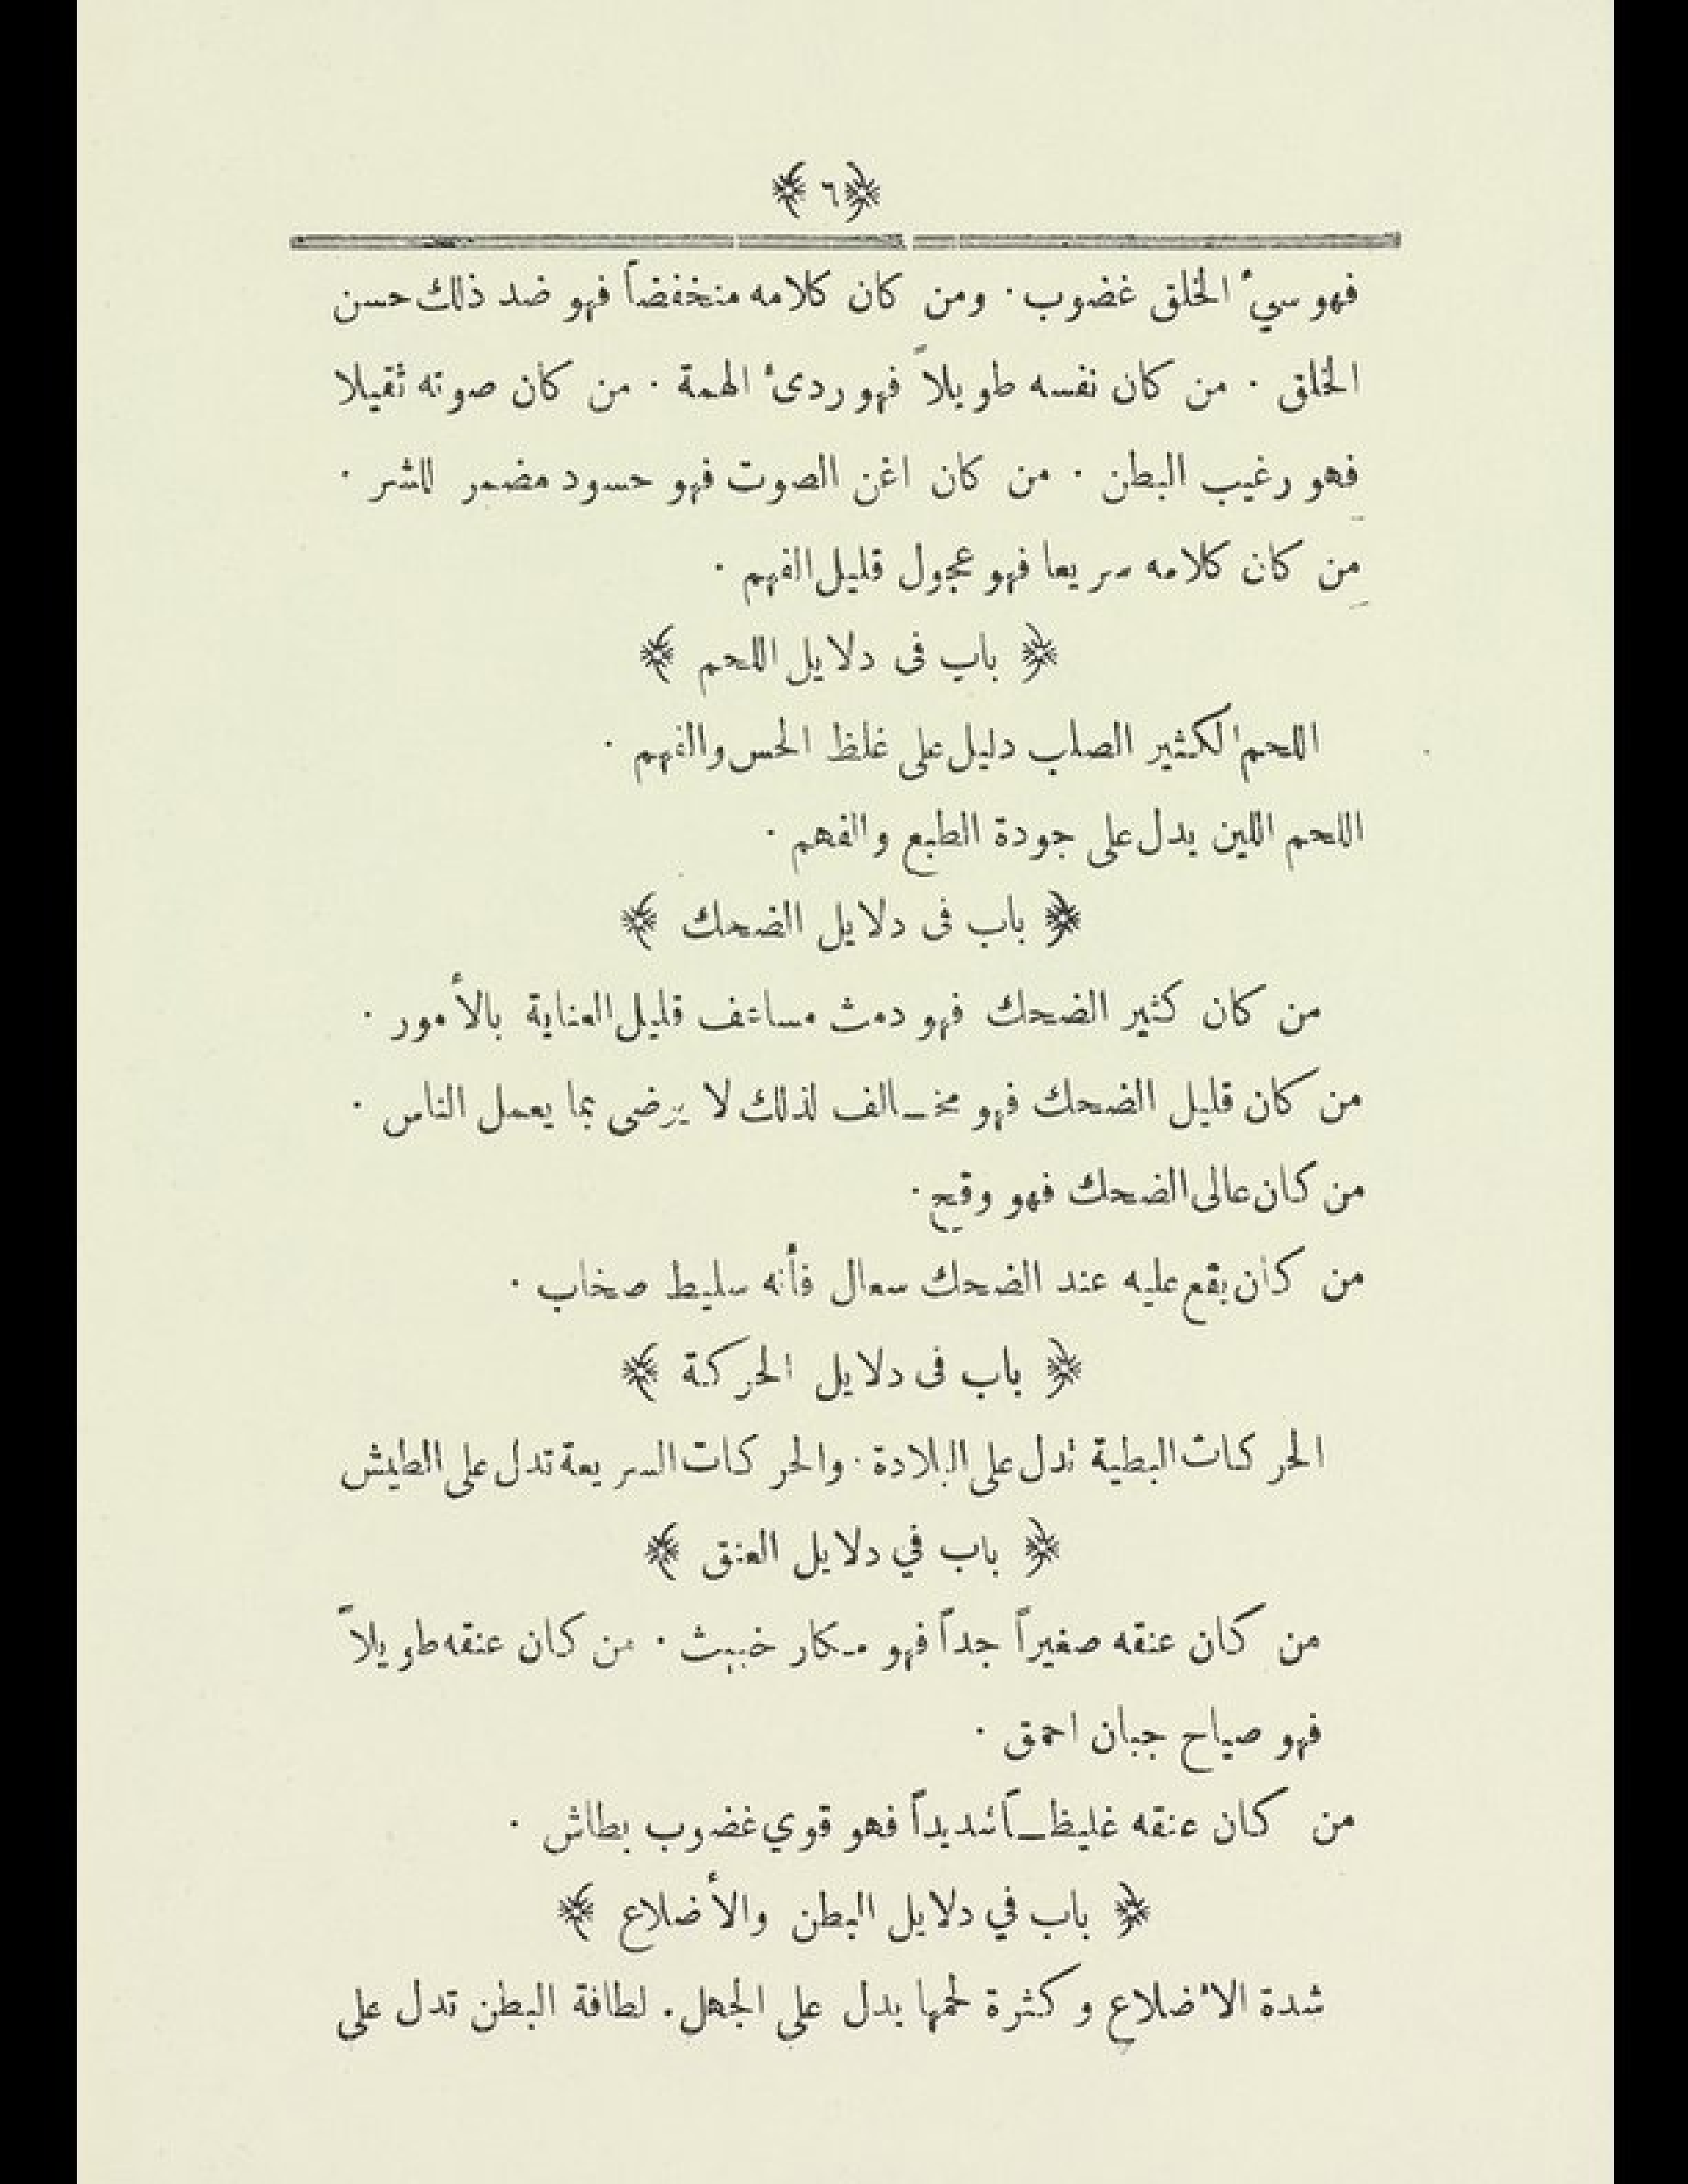 ﴿ ٦ ﴾
فهو سيء الخلق غضوب · ومن كان كلامه منخفضاً فهو ضد ذلك حسن
الخلق · من كان نفسه طويلاً فهو ردىء الهمة · من كان صوته ثقيلا
فهو رغيب البطن · من كان اغن الصوت فهو حسود مضمر للشر ·
من كان كلامه سريعا فهو عجول قليل الفهم ·
﴿ باب فى دلايل اللحم ﴾
اللحم الكثير الصلب دليل على غلظ الحس والفهم ·
اللحم اللين يدل على جودة الطبع والفهم ·
﴿ باب فى دلايل الضحك ﴾
من كان كثير الضحك فهو دمث مساعف قليل العناية بالأمور ·
من كان قليل الضحك فهو مخـالف لذلك لا يرضى بما يعمل الناس ·
من كان عالى الضحك فهو وقح ·
من كان يقع عليه عند الضحك سعال فأنه سليط صخاب ·
﴿ باب فى دلايل الحركة ﴾
الحركات البطية تدل على البلادة · والحركات السريعة تدل على الطيش
﴿ باب في دلايل العنق ﴾
من كان عنقه صغيراً جداً فهو مكار خبيث · من كان عنقه طويلاً
فهو صياح جبان احمق ·
من كان عنقه غليظـاً شديداً فهو قوي غضوب بطاش ·
﴿ باب في دلايل البطن والأضلاع ﴾
شدة الأضلاع وكثرة لحمها يدل على الجهل . لطافة البطن تدل على